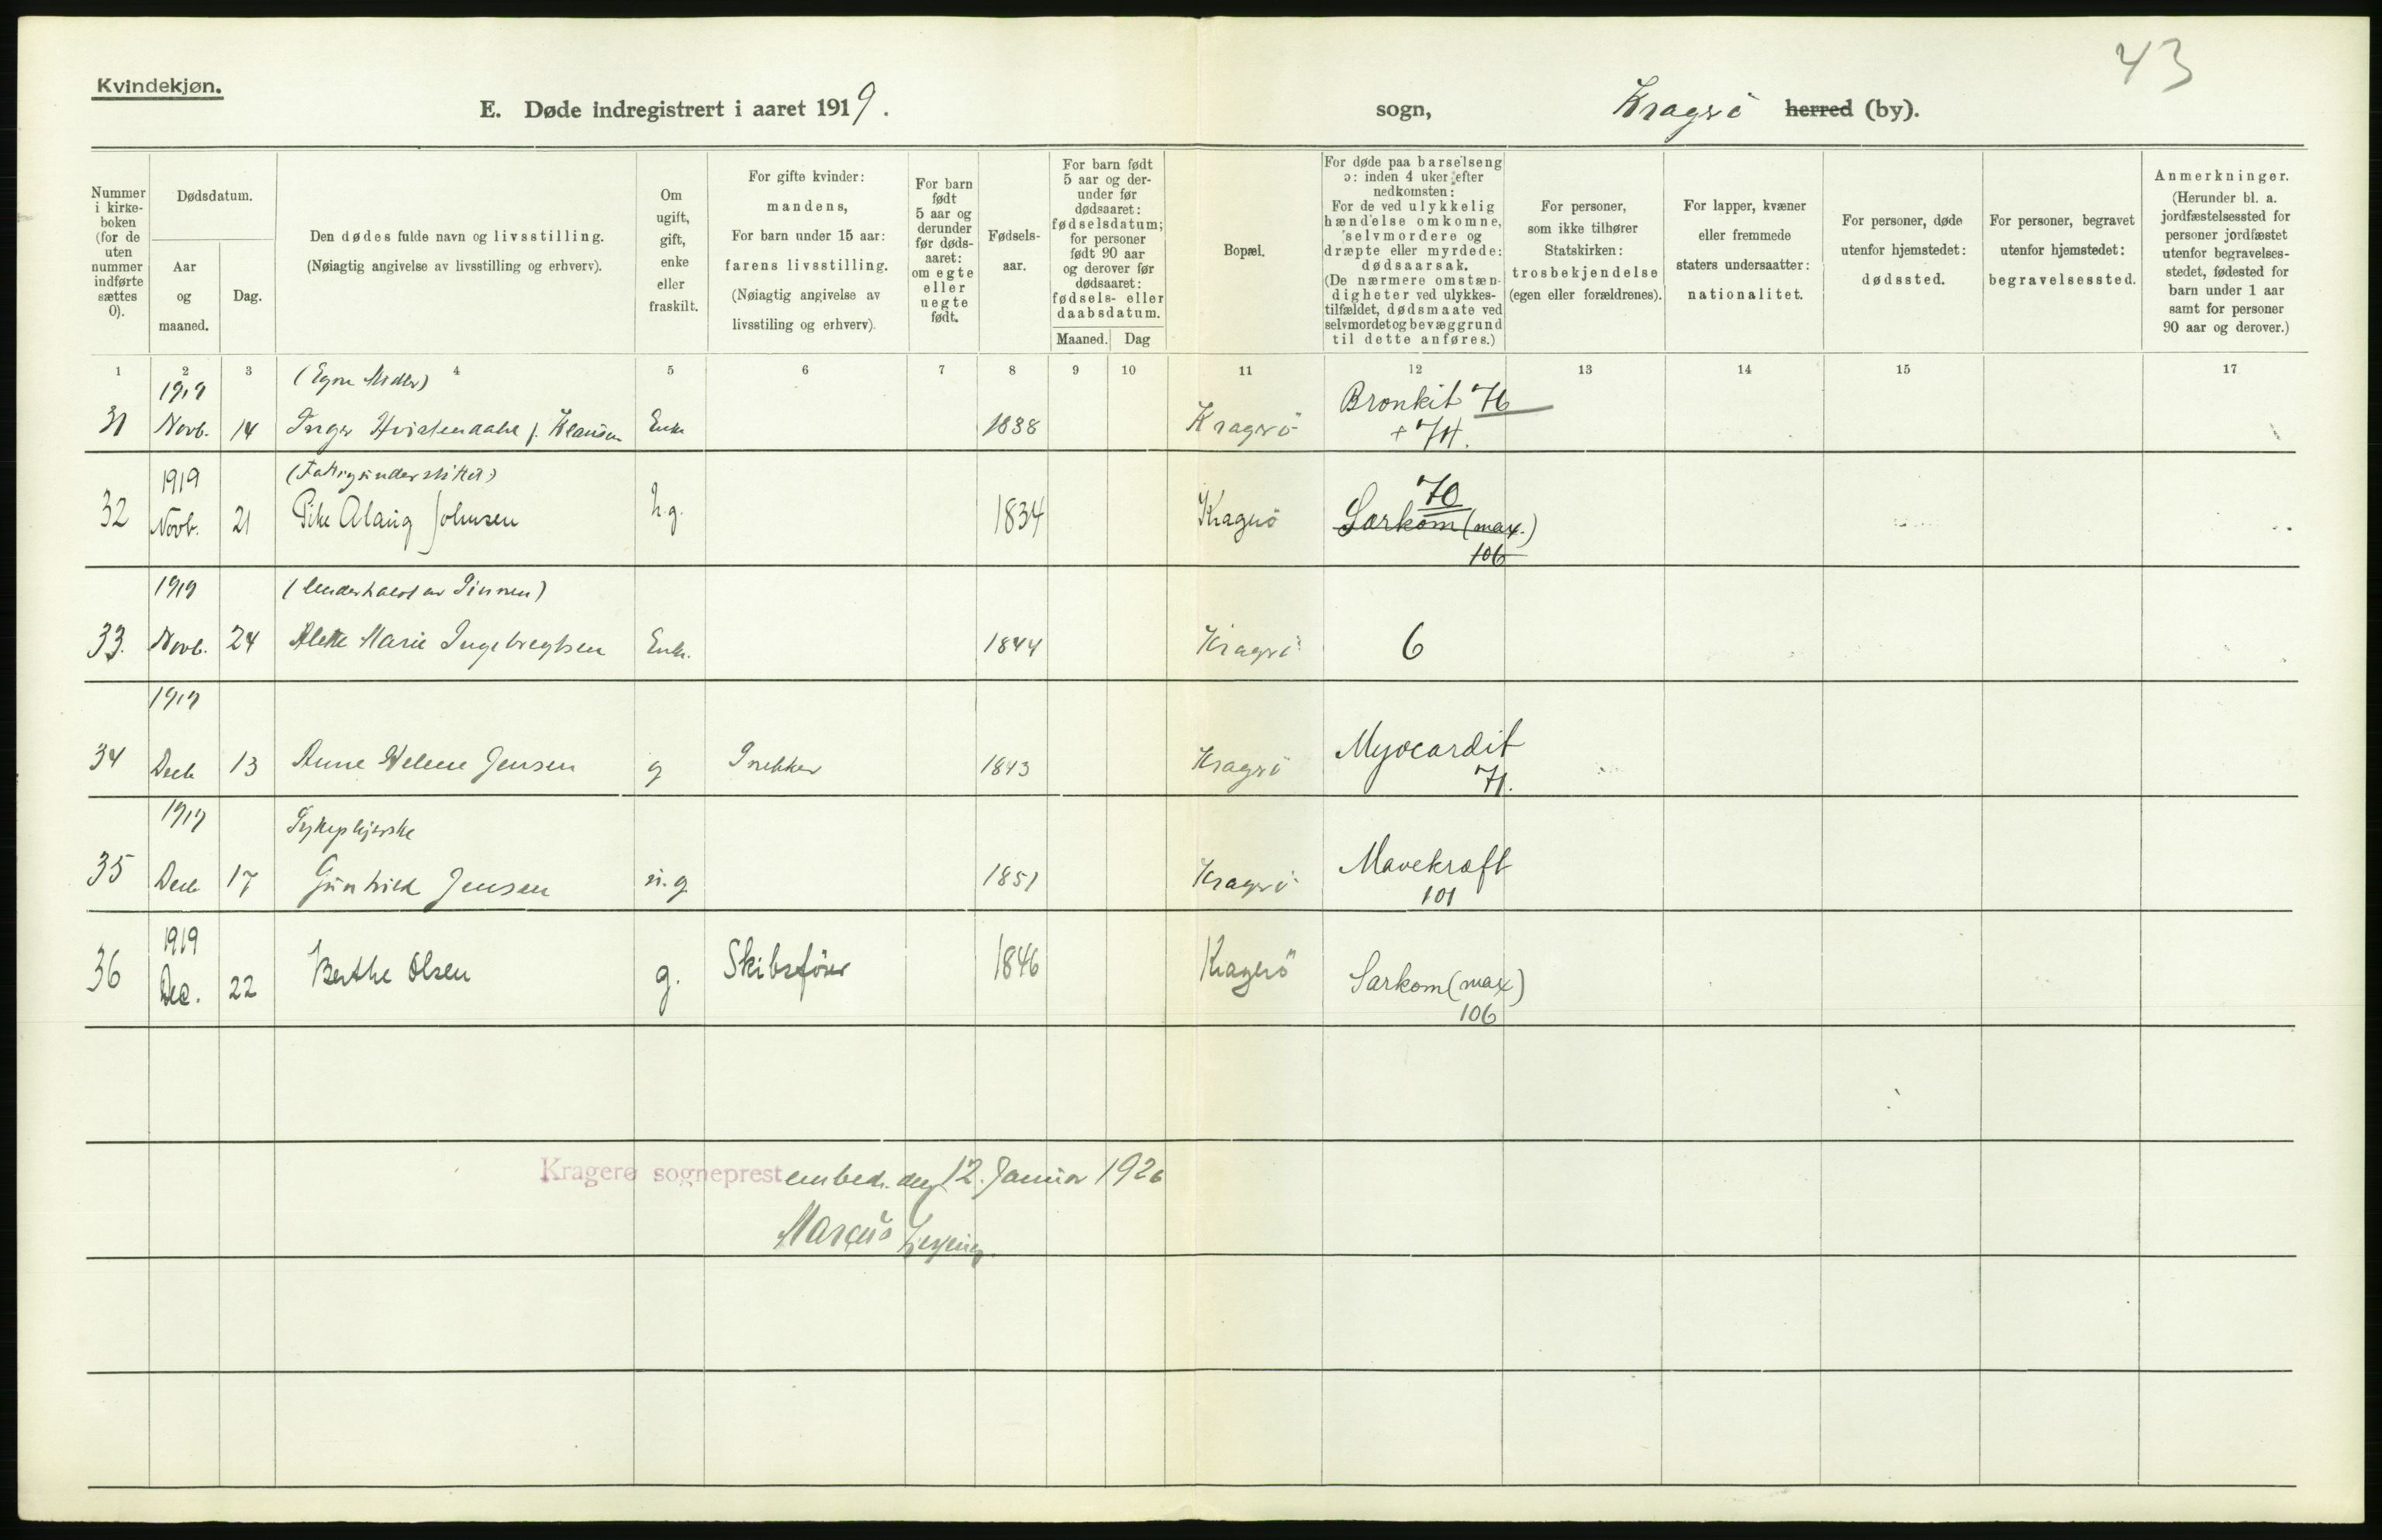 43
Kvindekjøn.
E. Døde indregistrert i aaret 1919. sogn, Kragerö herred (by).
Nummer i kirke-boken (for de uten nummer indførte sættes 0).
Dødsdatum.
Aar og maaned.
Dag.
Den dødes fulde navn og livsstilling.
(Nøiagtig angivelse av livsstilling og erhverv).
Om ugift, gift, enke eller fraskilt.
For gifte kvinder: mandens,
For barn under 15 aar: farens livsstilling.
(Nøiagtig angivelse av livsstiling og erhverv).
For barn født 5 aar og derunder før døds-aaret: om egte eller uegte født.
Fødsels-aar.
For barn født 5 aar og der-under før dødsaaret: fødselsdatum; for personer født 90 aar og derover før dødsaaret: fødsels- eller daabsdatum.
Maaned. Dag
Bopæl.
For døde paa barselseng ɔ: inden 4 uker efter nedkomsten:
For de ved ulykkelig hændelse omkomne, selvmordere og dræpte eller myrdede: dødsaarsak.
(De nærmere omstæn-digheter ved ulykkes-tilfældet, dødsmaate ved selvmordet og bevæggrund til dette anføres.)
For personer, som ikke tilhører Statskirken: trosbekjendelse (egen eller forældrenes).
For lapper, kvæner eller fremmede staters undersaatter: nationalitet.
For personer, døde utenfor hjemstedet: dødssted.
For personer, begravet utenfor hjemstedet: begravelsessted.
Anmerkninger.
(Herunder bl. a. jordfæstelsessted for personer jordfæstet utenfor begravelses-stedet, fødested for barn under 1 aar samt for personer 90 aar og derover.)
1 2 3 4 5 6 7 8 9 10 11 12 13 14 15 17
1919 (Egne Midler) Bronkit 76
31 Novb. 14 Inger Hvistendahl f. Klausen Enke 1838 Kragerö + 74.
1919 (Fattigunderstöttet) 70
32 Novb. 21 Pike Alaug Johnsen u.g. 1834 Kragerö Sarkom (max.)
106
1919 (Underholdt av Sönnen)
33. Novb. 24 Alette Marie Ingebregtsen Enk. 1844 Kragerö 6
1919
34 Decb 13 Anne Helene Jensen g Snekker 1843 Kragerö Myocardit
71.
1919 Sykepleierske
35 Decb 17 Gunhild Jensen u.g. 1851 Kragerö Mavekræft
101
1919
36 Dec. 22 Berthe Olsen g. Skibsförer 1846 Kragerö Sarkom (max)
106
Kragerø sogneprestembed. den 12. Januar 1920
Marcus